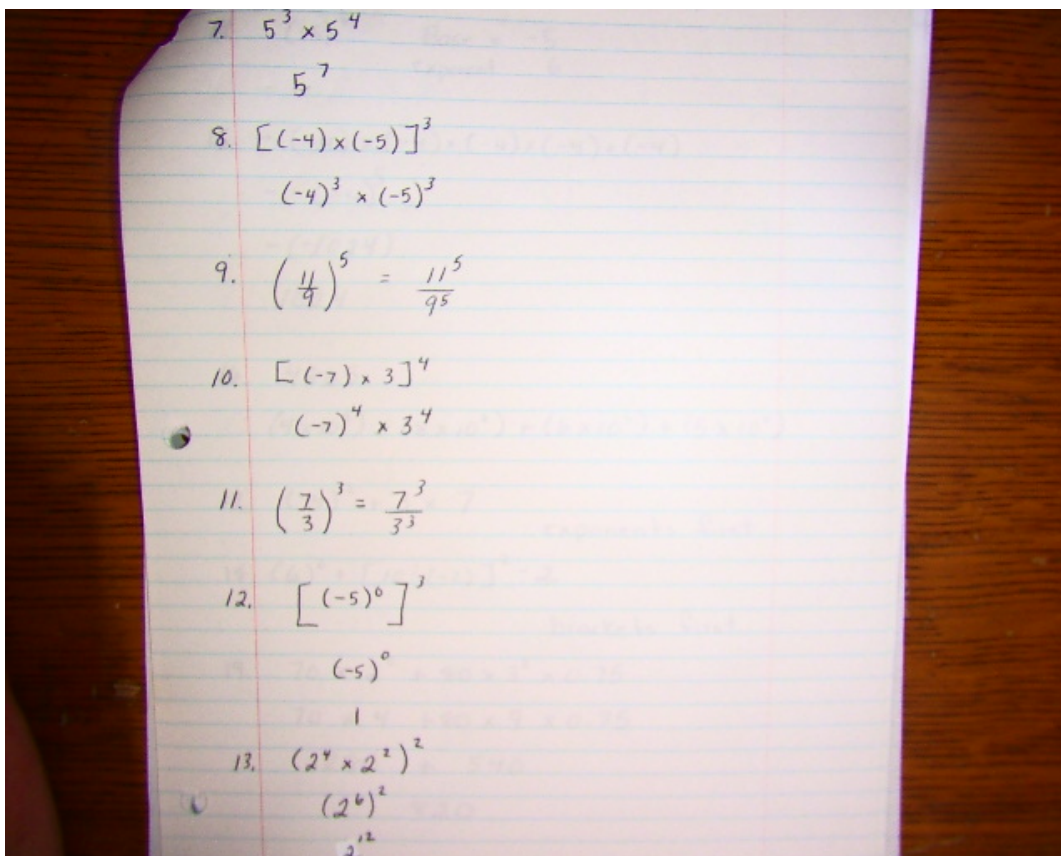 7. 5³ × 5⁴
5⁷
8. [(-4) × (-5)]³
(-4)³ × (-5)³
9. (11/9)⁵ = 11⁵/9⁵
10. [(-7) × 3]⁴
(-7)⁴ × 3⁴
11. (7/3)³ = 7³/3³
12. [(-5)⁰]³
(-5)⁰
1
13. (2⁴ × 2²)²
(2⁶)²
2¹²